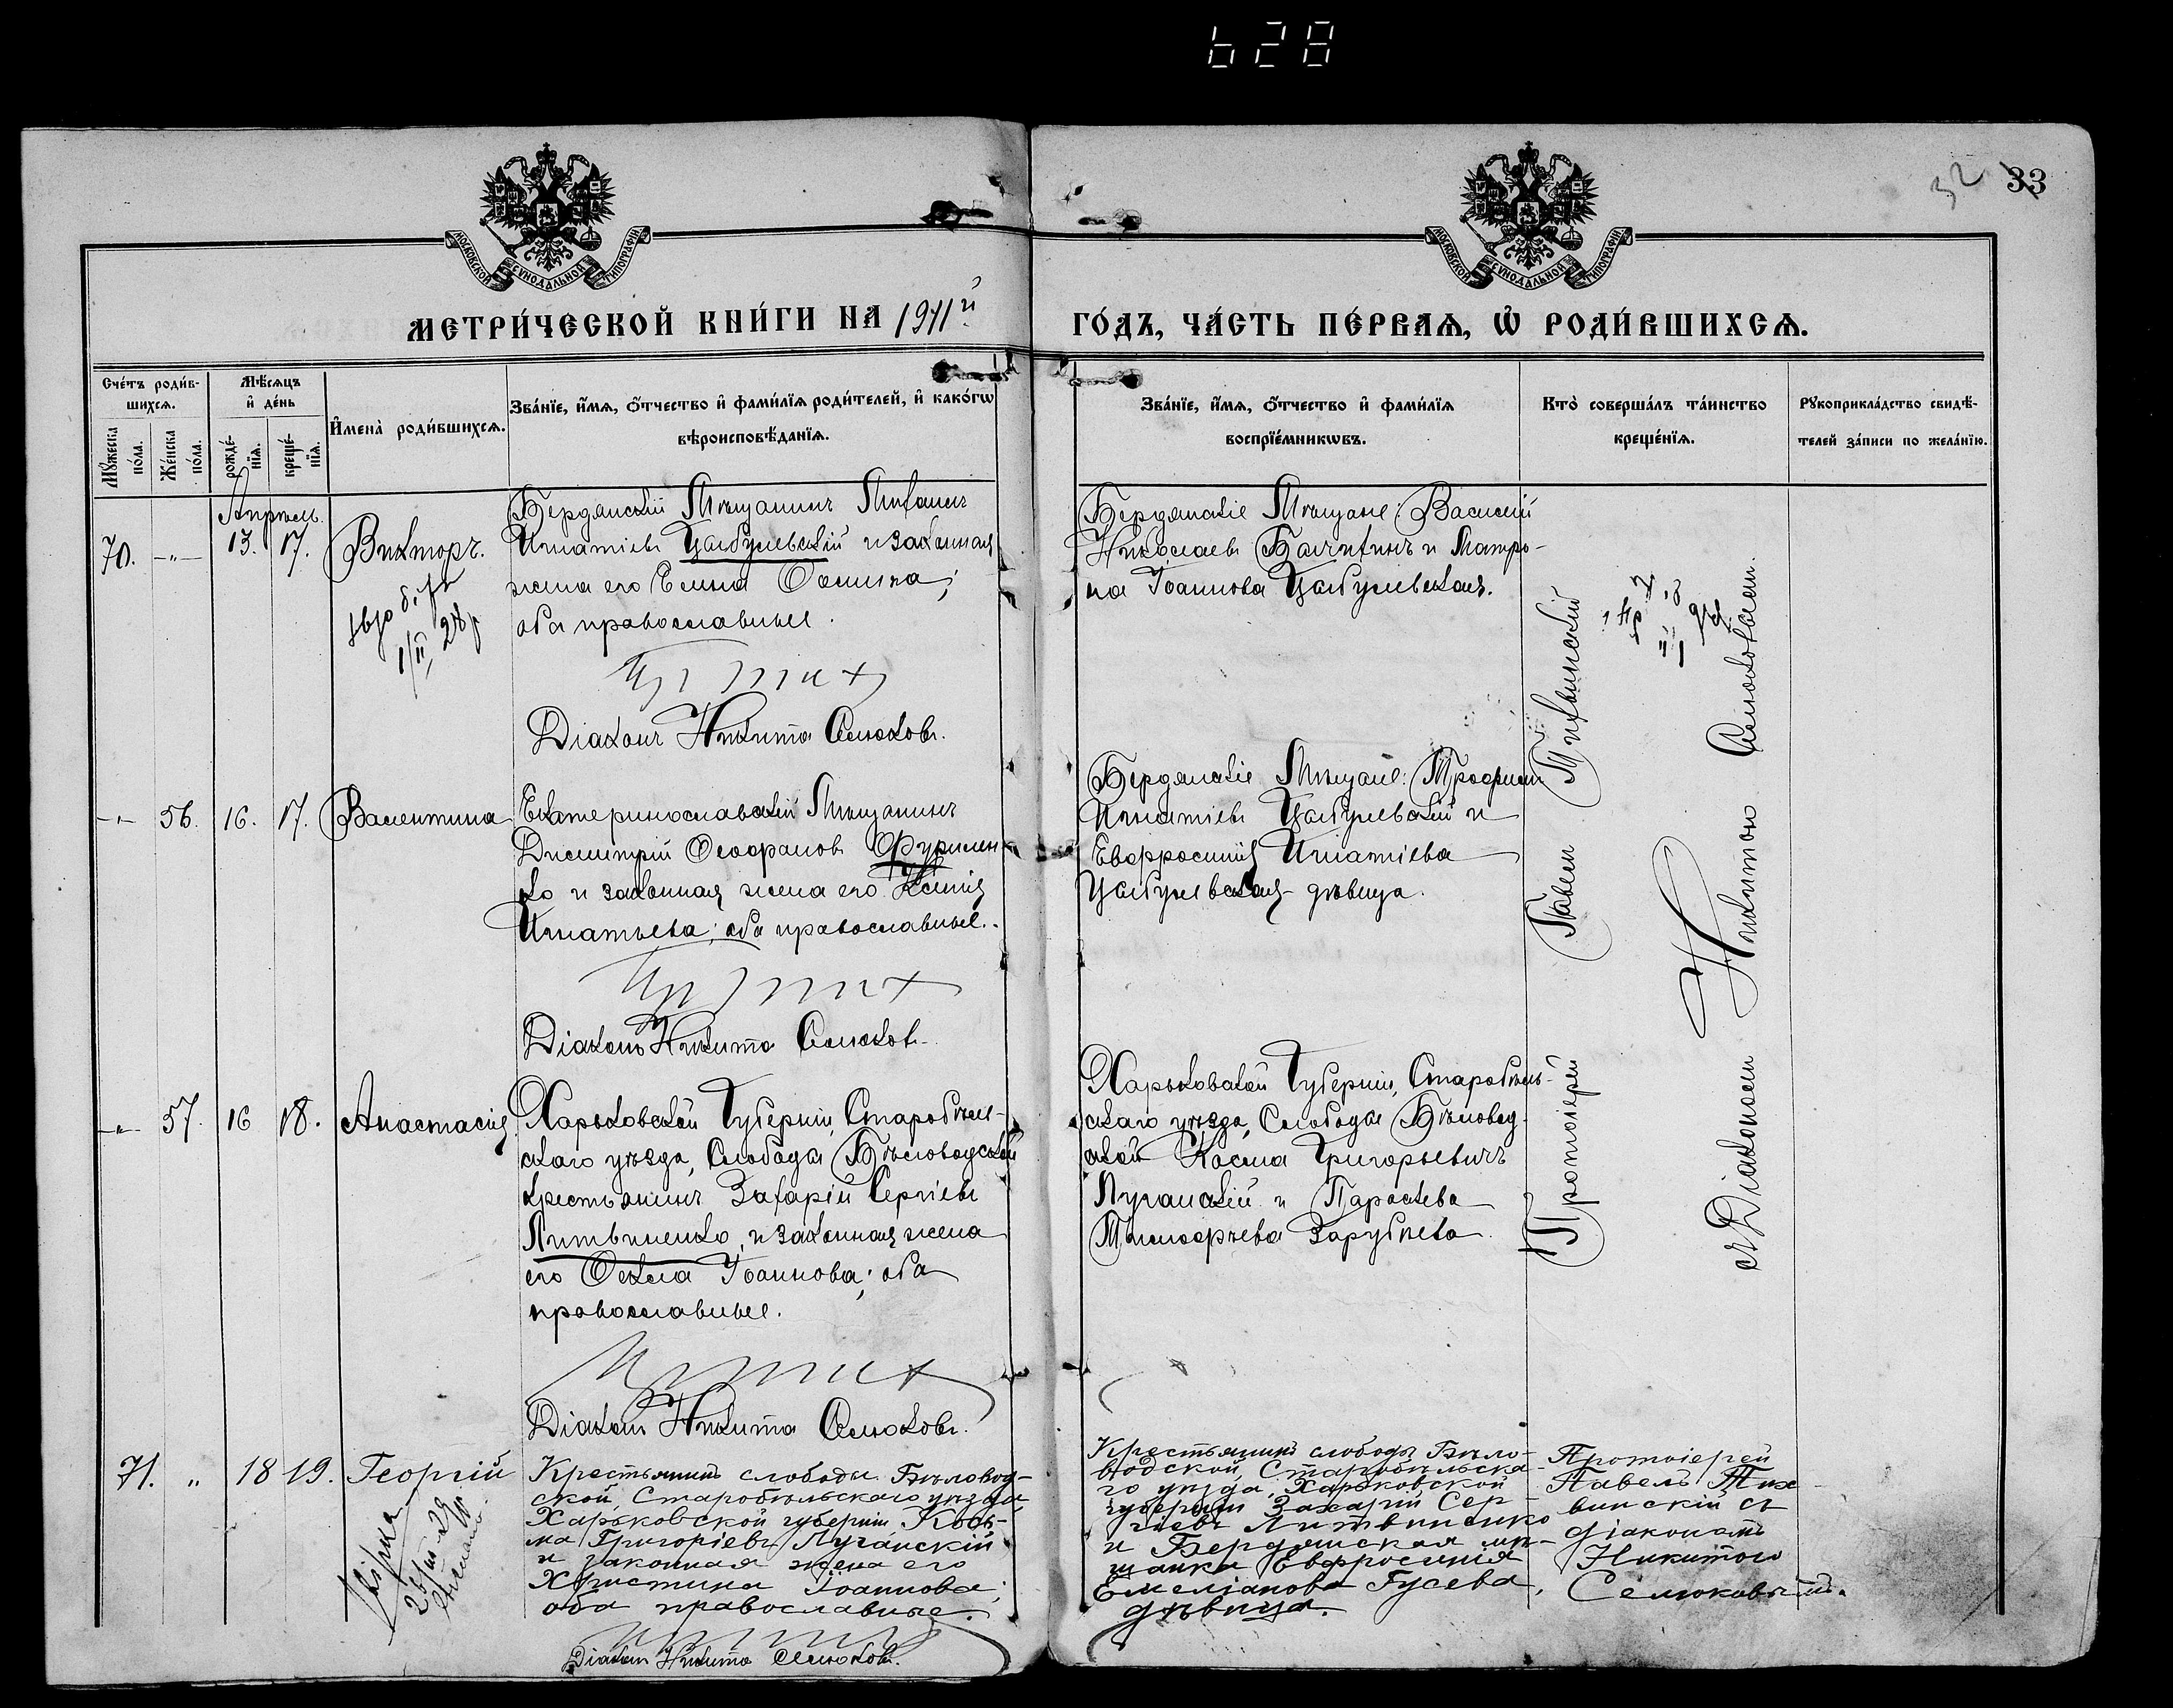 628
32 33
МОСКОВСКОЙ СѴНОДАЛЬНОЙ ТИПОГРАФІИ
МОСКОВСКОЙ СѴНОДАЛЬНОЙ ТИПОГРАФІИ
МЕТРИ́ЧЕСКОЙ КНИ́ГИ НА 1911й
ГО́ДЪ, ЧА́СТЬ ПЕ́РВАѦ, Ѽ РОДИ́ВШИХСѦ.
Сче́тъ роди́в-
шихсѧ.
Мꙋ́жеска по́ла.
Же́нска по́ла.
Мѣ́сѧцъ
и҆ де́нь
рожде́-
нїѧ.
креще́-
нїѧ.
И҆мена̀ роди́вшихсѧ.
Зва́нїе, и҆́мѧ, ѻ҆́тчество и҆ фами́лїѧ роди́телей, и҆ како́гѡ
вѣроисповѣ́данїѧ.
Зва́нїе, и҆́мѧ, ѻ҆́тчество и҆ фами́лїѧ
воспрїе́мникѡвъ.
Кто̀ соверша́лъ та́инство
креще́нїѧ.
Рꙋкоприкла́дство свидѣ́-
телей за́писи по жела́нїю.
Апрѣль.
70. -"- 13. 17. Викторъ.
Бердянскій Мѣщанинъ Михаилъ
Игнатіевъ Цыбулевскій и законная
жена его Елена Осипова;
оба православные.
Діаконъ Никита Селюковъ.
Бердянскіе Мѣщане: Василій
Николаевъ и Матро-
на Іоаннова Цыбулевская.
-"- 56. 16. 17. Валентина
Екатеринославскій Мѣщанинъ
Димитрій Ѳеофановъ Фурмен-
ко и законная жена его Ксенія
Игнатьева; оба православные.
Діаконъ Никита Селюковъ.
Бердянскіе Мѣщане: Трофимъ
Игнатіевъ Цыбулевскій и
Евфросинія Игнатіева
Цыбулевская дѣвица.
-"- 57. 16 18. Анастасія
Харьковской Губерніи, Старобѣль-
скаго уѣзда, Слободы Бѣловодской
крестьянинъ Захарій Сергіевъ
Литвиненко, и законная жена
его Ѳекла Іоаннова; оба
православные.
Діаконъ Никита Селюковъ.
Харьковской Губерніи, Старобѣль-
скаго уѣзда, Слободы Бѣловод-
ской Косма Григорьевичъ
Луганскій и Параскева
Тимоѳеева Зарубнева.
Протоіерей Павелъ Тихвинскій
съ Діакономъ Никитою Селюковымъ
71. " 18 19. Георгій
Крестьянинъ слободы Бѣловод-
ской, Старобѣльскаго уѣзда
Харьковской губерніи Кось-
ма Григоріевъ Луганскій
и законная жена его
Христина Іоаннова;
оба православные.
Діаконъ Никита Селюковъ.
Крестьянинъ слободы Бѣло-
водской, Старобѣльска-
го уѣзда, Харьковской
губерніи Захарій Сер-
гіевъ Литвиненко
и Бердянская мѣ-
щанка Евфросинія
Емеліанова Гусева,
дѣвица.
Протоіерей
Павелъ Тих-
винскій съ
діакономъ
Никитою
Селюковымъ.